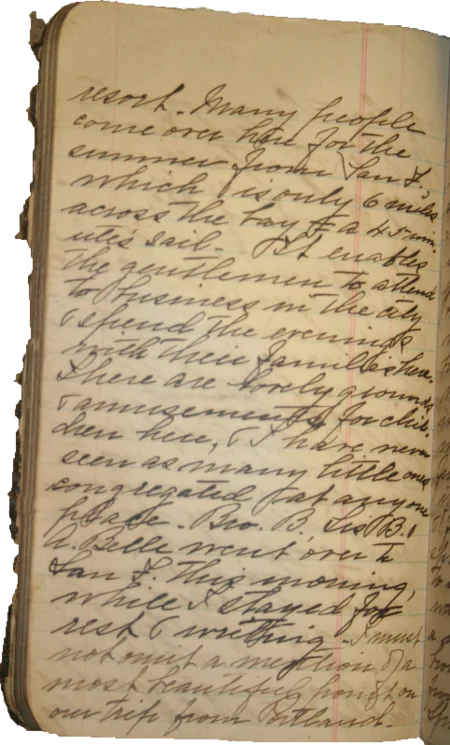 resort. Many people
come over here for the
summer from San F.,
which is only 6 miles
across the bay & a 45 min
utes sail. It enables
the gentlemen to attend
to business in the city
& spend the evenings
with their families here.
There are lovely grounds
& amusements for chil-
dren here, & I have never
seen as many little ones
congregated at any one
place. Bro. B. Sis B. &
A. Belle went over to
San F. this morning,
while I stayed for
rest & writing. I must
not omit a mention of a
most beautiful on
our trip from Portland.